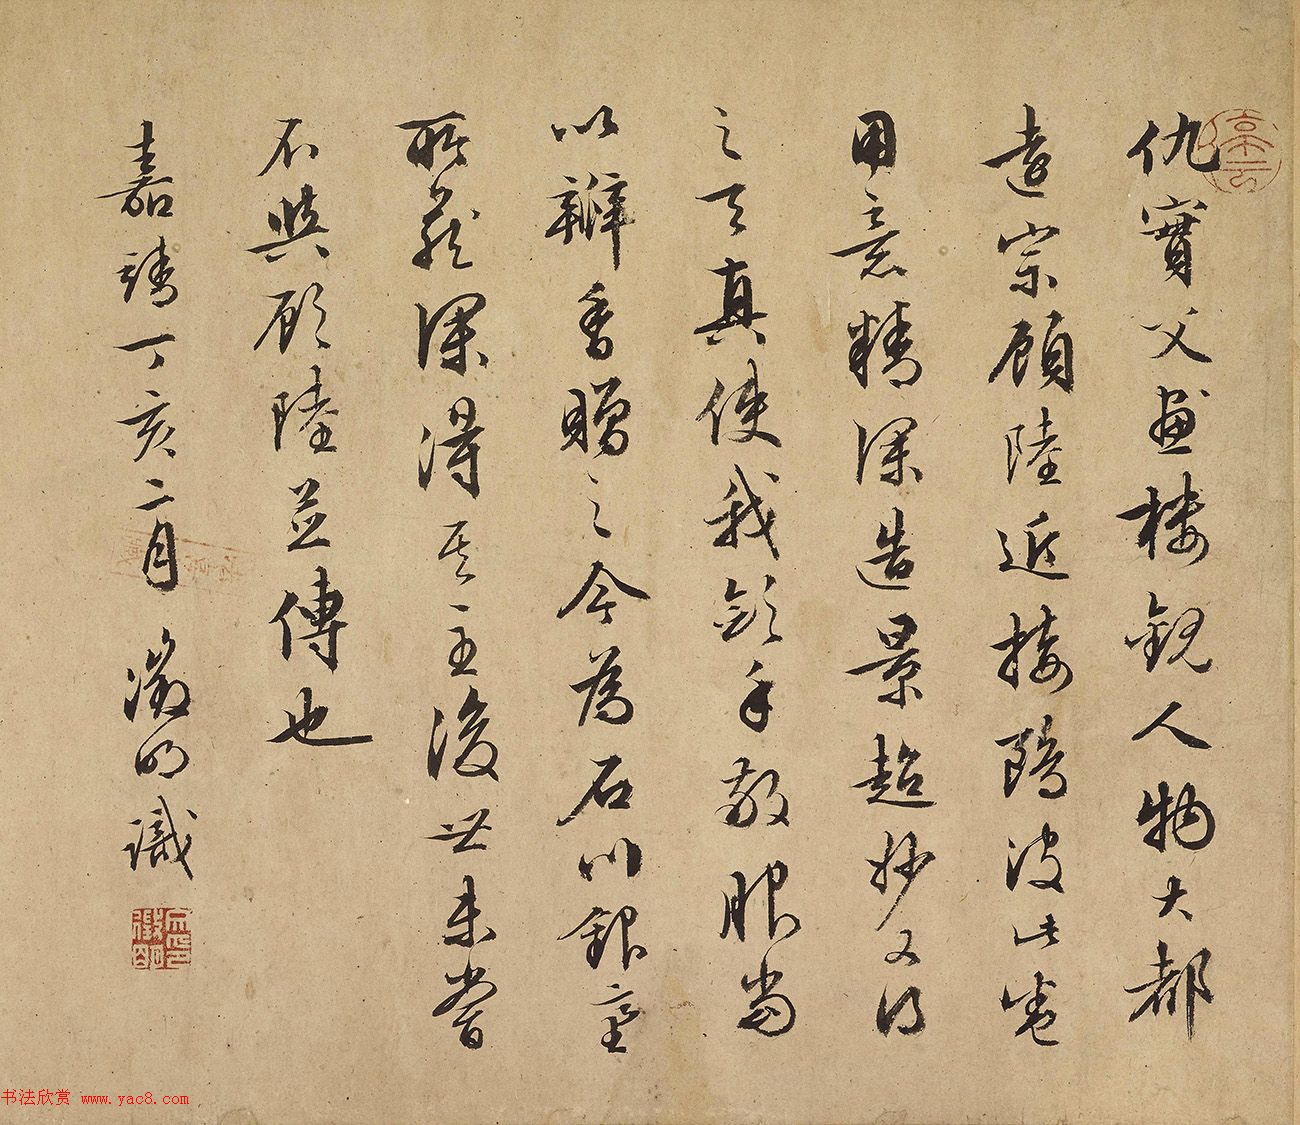 仇實父畫樓觀人物大都
遠宗顧陸近接隨波此卷
用意精深造景超妙又得
之天真使我斂手敬服當
以瓣香贈之今為石川銀臺
所藏深得其主後世未嘗
不與顧陸並傳也
嘉靖丁亥二月徵明識
書法欣賞 www.yac8.com